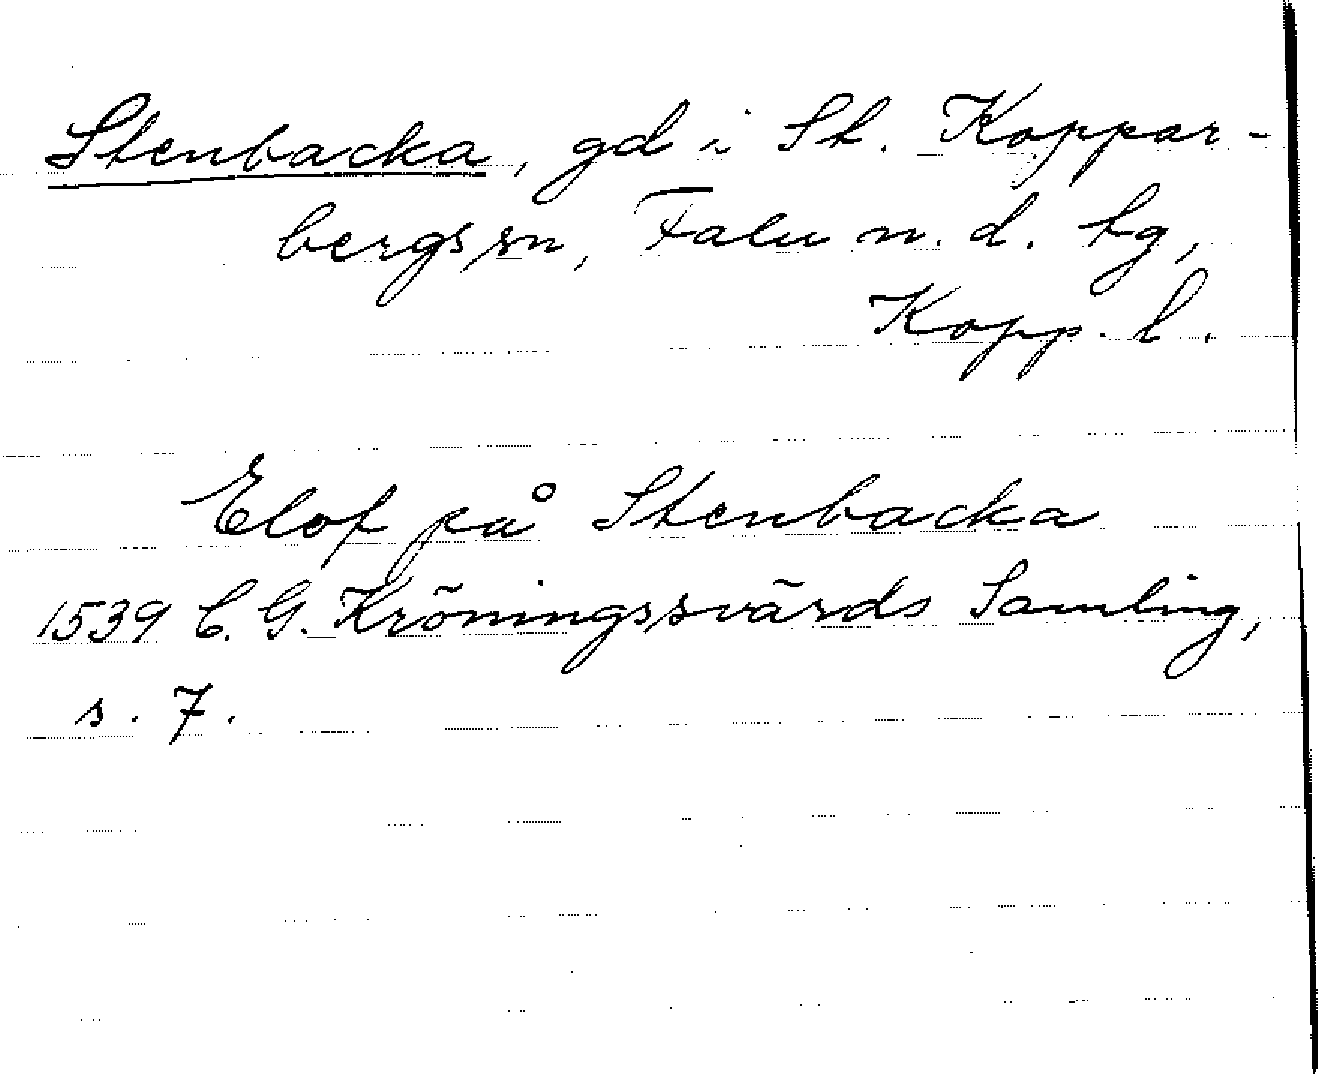 Stenbacka, gd i St. Koppar-
bergs sn, Falu n. d. tg,
Kopp. l.
Elof på Stenbacka
1539 C. G. Kröningssvärds Samling,
s. 7.